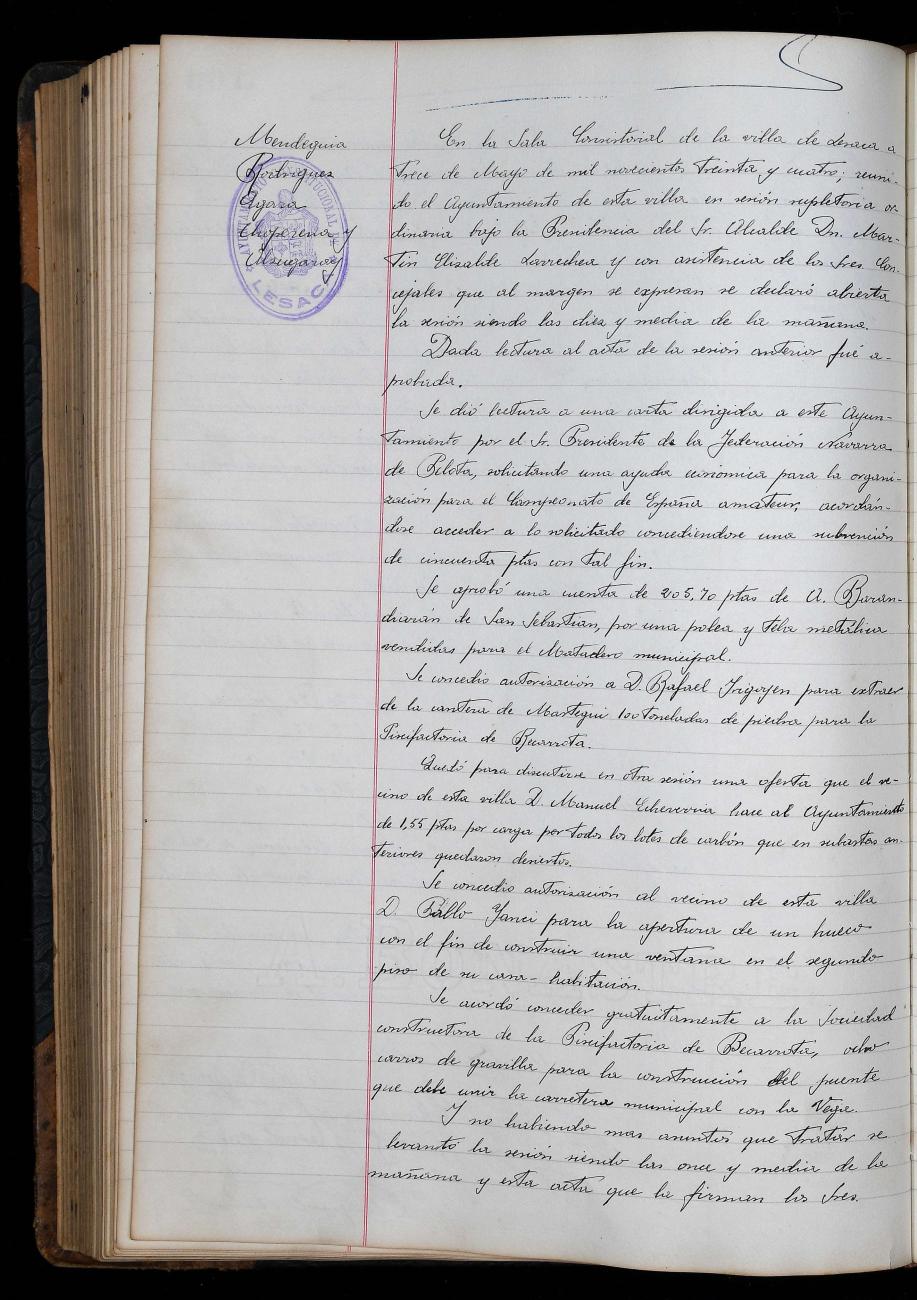 Mendeguia
Rodriguez
Agara
Choperena y
Almazaray
AYUNTAMIENTO CONSTITUCIONAL DE
LESACA
En la Sala Consistorial de la villa de Lesaca a
trece de Mayo de mil novecientos treinta y cuatro; reuni-
do el Ayuntamiento de esta villa en sesión supletoria or-
dinaria bajo la Presidencia del Sr. Alcalde Dn. Mar-
tin Elizalde Larrechea y con asistencia de los Sres. Con-
cejales que al margen se expresan se declaró abierta
la sesión siendo las diez y media de la mañana.
Dada lectura al acta de la sesión anterior fué a-
probada.
Se dió lectura a una carta dirigida a este Ayun-
tamiento por el Sr. Presidente de la Federación Navarra
de Pelota, solicitando una ayuda económica para la organi-
zación para el Campeonato de España amateur, acordán-
dose acceder a lo solicitado concediendose una subvención
de cincuenta ptas con tal fin.
Se aprobó una cuenta de 205,70 ptas de A. Baran-
diarán de San Sebastian, por una polea y tela metálica
vendidas para el Matadero municipal.
Se concedio autorización a D. Rafael Irigoyen para extraer
de la cantera de Mastegui 100 toneladas de piedra para la
Piscifactoria de Becarrota.
Quedó para discutirse en otra sesión una oferta que el ve-
cino de esta villa D. Manuel Echeverria hace al Ayuntamiento
de 1,55 ptas por carga por todos los lotes de carbón que en subastas an-
teriores quedaron desiertos.
Se concedio autorización al vecino de esta villa
D. Pablo Yanci para la apertura de un hueco
con el fin de construir una ventana en el segundo
piso de su casa-habitación.
Se acordó conceder gratuitamente a la Sociedad
constructora de la Piscifactoria de Becarrota, ocho
carros de gravilla para la construcción del puente
que debe unir la carretera municipal con la Vega.
Y no habiendo mas asuntos que tratar se
levantó la sesión siendo las once y media de la
mañana y esta acta que la firman los Sres.